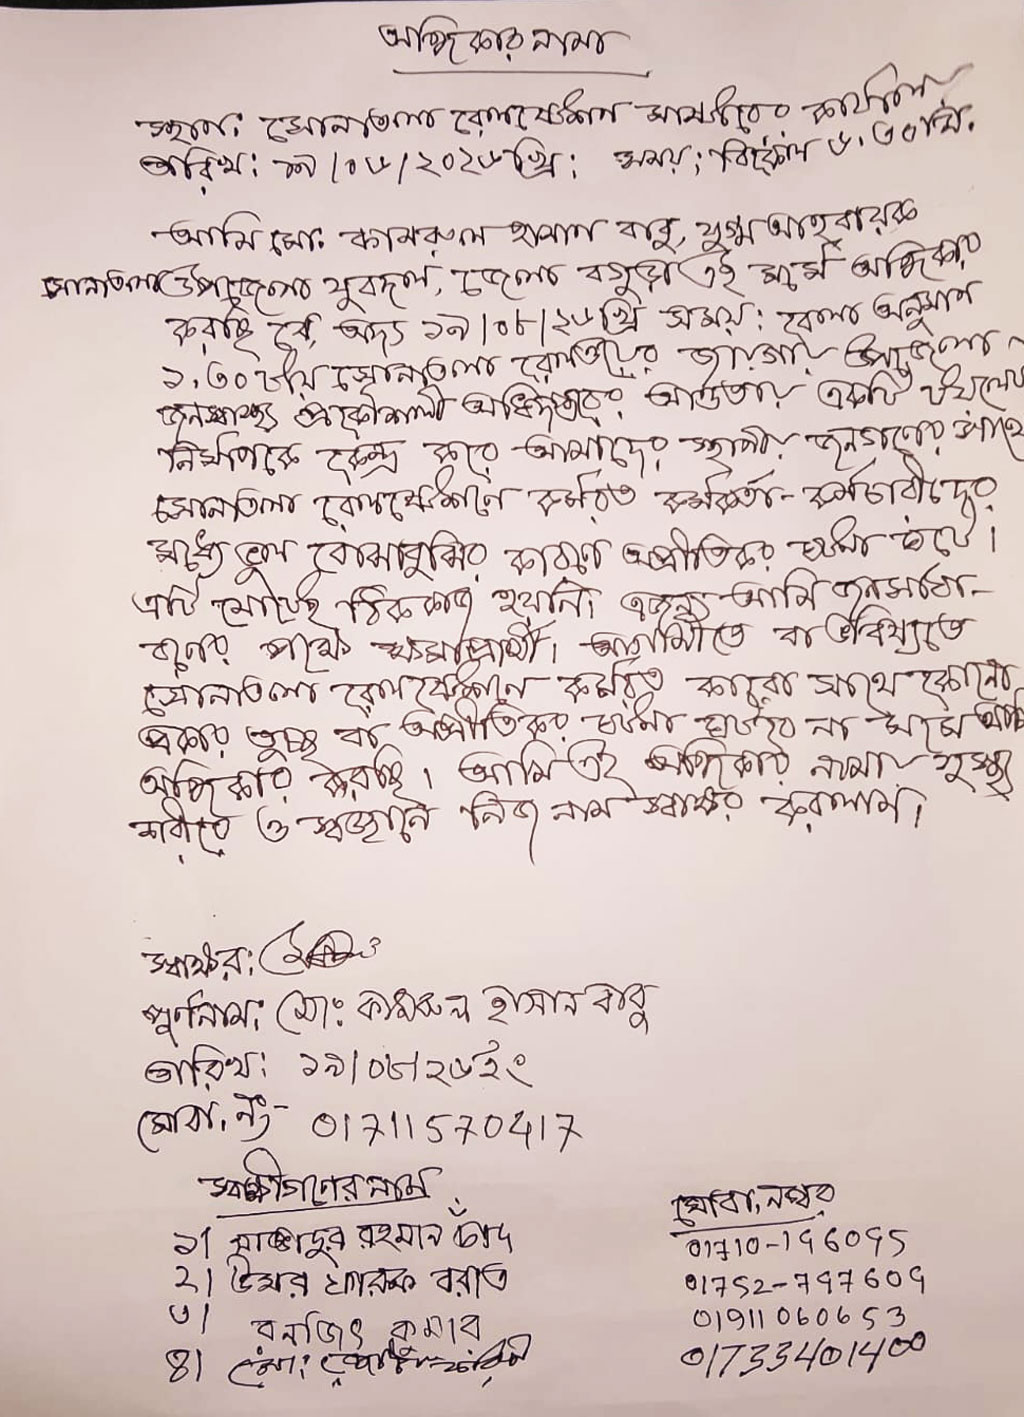 অঙ্গিকার নামা
স্থান: সোনাতলা রেলস্টেশন মাস্টারের কার্যালয়
তারিখ: ১৯/০৮/২০২৬ খ্রি: সময়: বিকেল ৬.৩০ মি.
আমি মো: কামরুল হাসান বাবু, যুগ্ম আহবায়ক
সোনাতলা উপজেলা যুবদল, জেলা বগুড়া এই মর্মে অঙ্গিকার
করছি যে, অদ্য ১৯/০৮/২৬ খ্রি সময়: বেলা অনুমান
১.৩০ টায় সোনাতলা রেলওয়ের জায়গায় উপজেলা
জনস্বাস্থ্য প্রকৌশলী অধিদপ্তরের আওতায় একটি
নির্মাণকে কেন্দ্র করে আমাদের স্থানীয় জনগণের সাথে
সোনাতলা রেলস্টেশনে কর্মরত কর্মকর্তা-কর্মচারীদের
মধ্যে ভুল বোঝাবুঝির কারণে অপ্রীতিকর ঘটনা ঘটে।
এটি মোটেই ঠিক কাজ হয়নি। এজন্য আমি জনসাধা-
রণের পক্ষে ক্ষমাপ্রার্থী। আগামীতে বা ভবিষ্যতে
সোনাতলা রেলস্টেশনে কর্মরত কারো সাথে কোনো
প্রকার তুচ্ছ বা অপ্রীতিকর ঘটনা ঘটবে না মর্মে আমি
অঙ্গিকার করছি। আমি এই অঙ্গিকার নামা সুস্থ
শরীরে ও স্বজ্ঞানে নিজ নাম স্বাক্ষর করলাম।
স্বাক্ষর:
পুর্ণনাম: মো: কামরুল হাসান বাবু
তারিখ: ১৯/০৮/২৬ ইং
মোবা. নং- 01711570417
স্বাক্ষীগণের নাম
মোবা. নম্বর
১। রহমান চাঁদ
01710-196095
২। উমর ফারুক
01752-797609
৩। রনজিৎ কুমার
01911060653
৪। মো:
01733401400